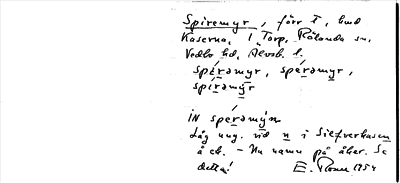 Spiremyr, förr T, hmd
Kaserna. 1 Torp, Rölanda sn,
Vedbo hd, Älvsb. l.
spérəmyr, spérəmyr,
spirəmýr
IN spérəmýn
Låg ung. vid n i Silfverkasen
å ek. - Nu namn på åker. Se
detta! E. 1954